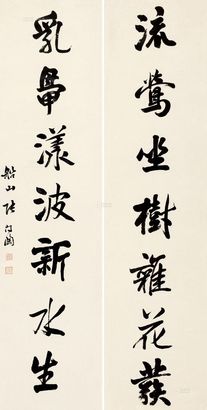 流莺坐樹雜花發
乳鳧漾波新水生
船山張問陶